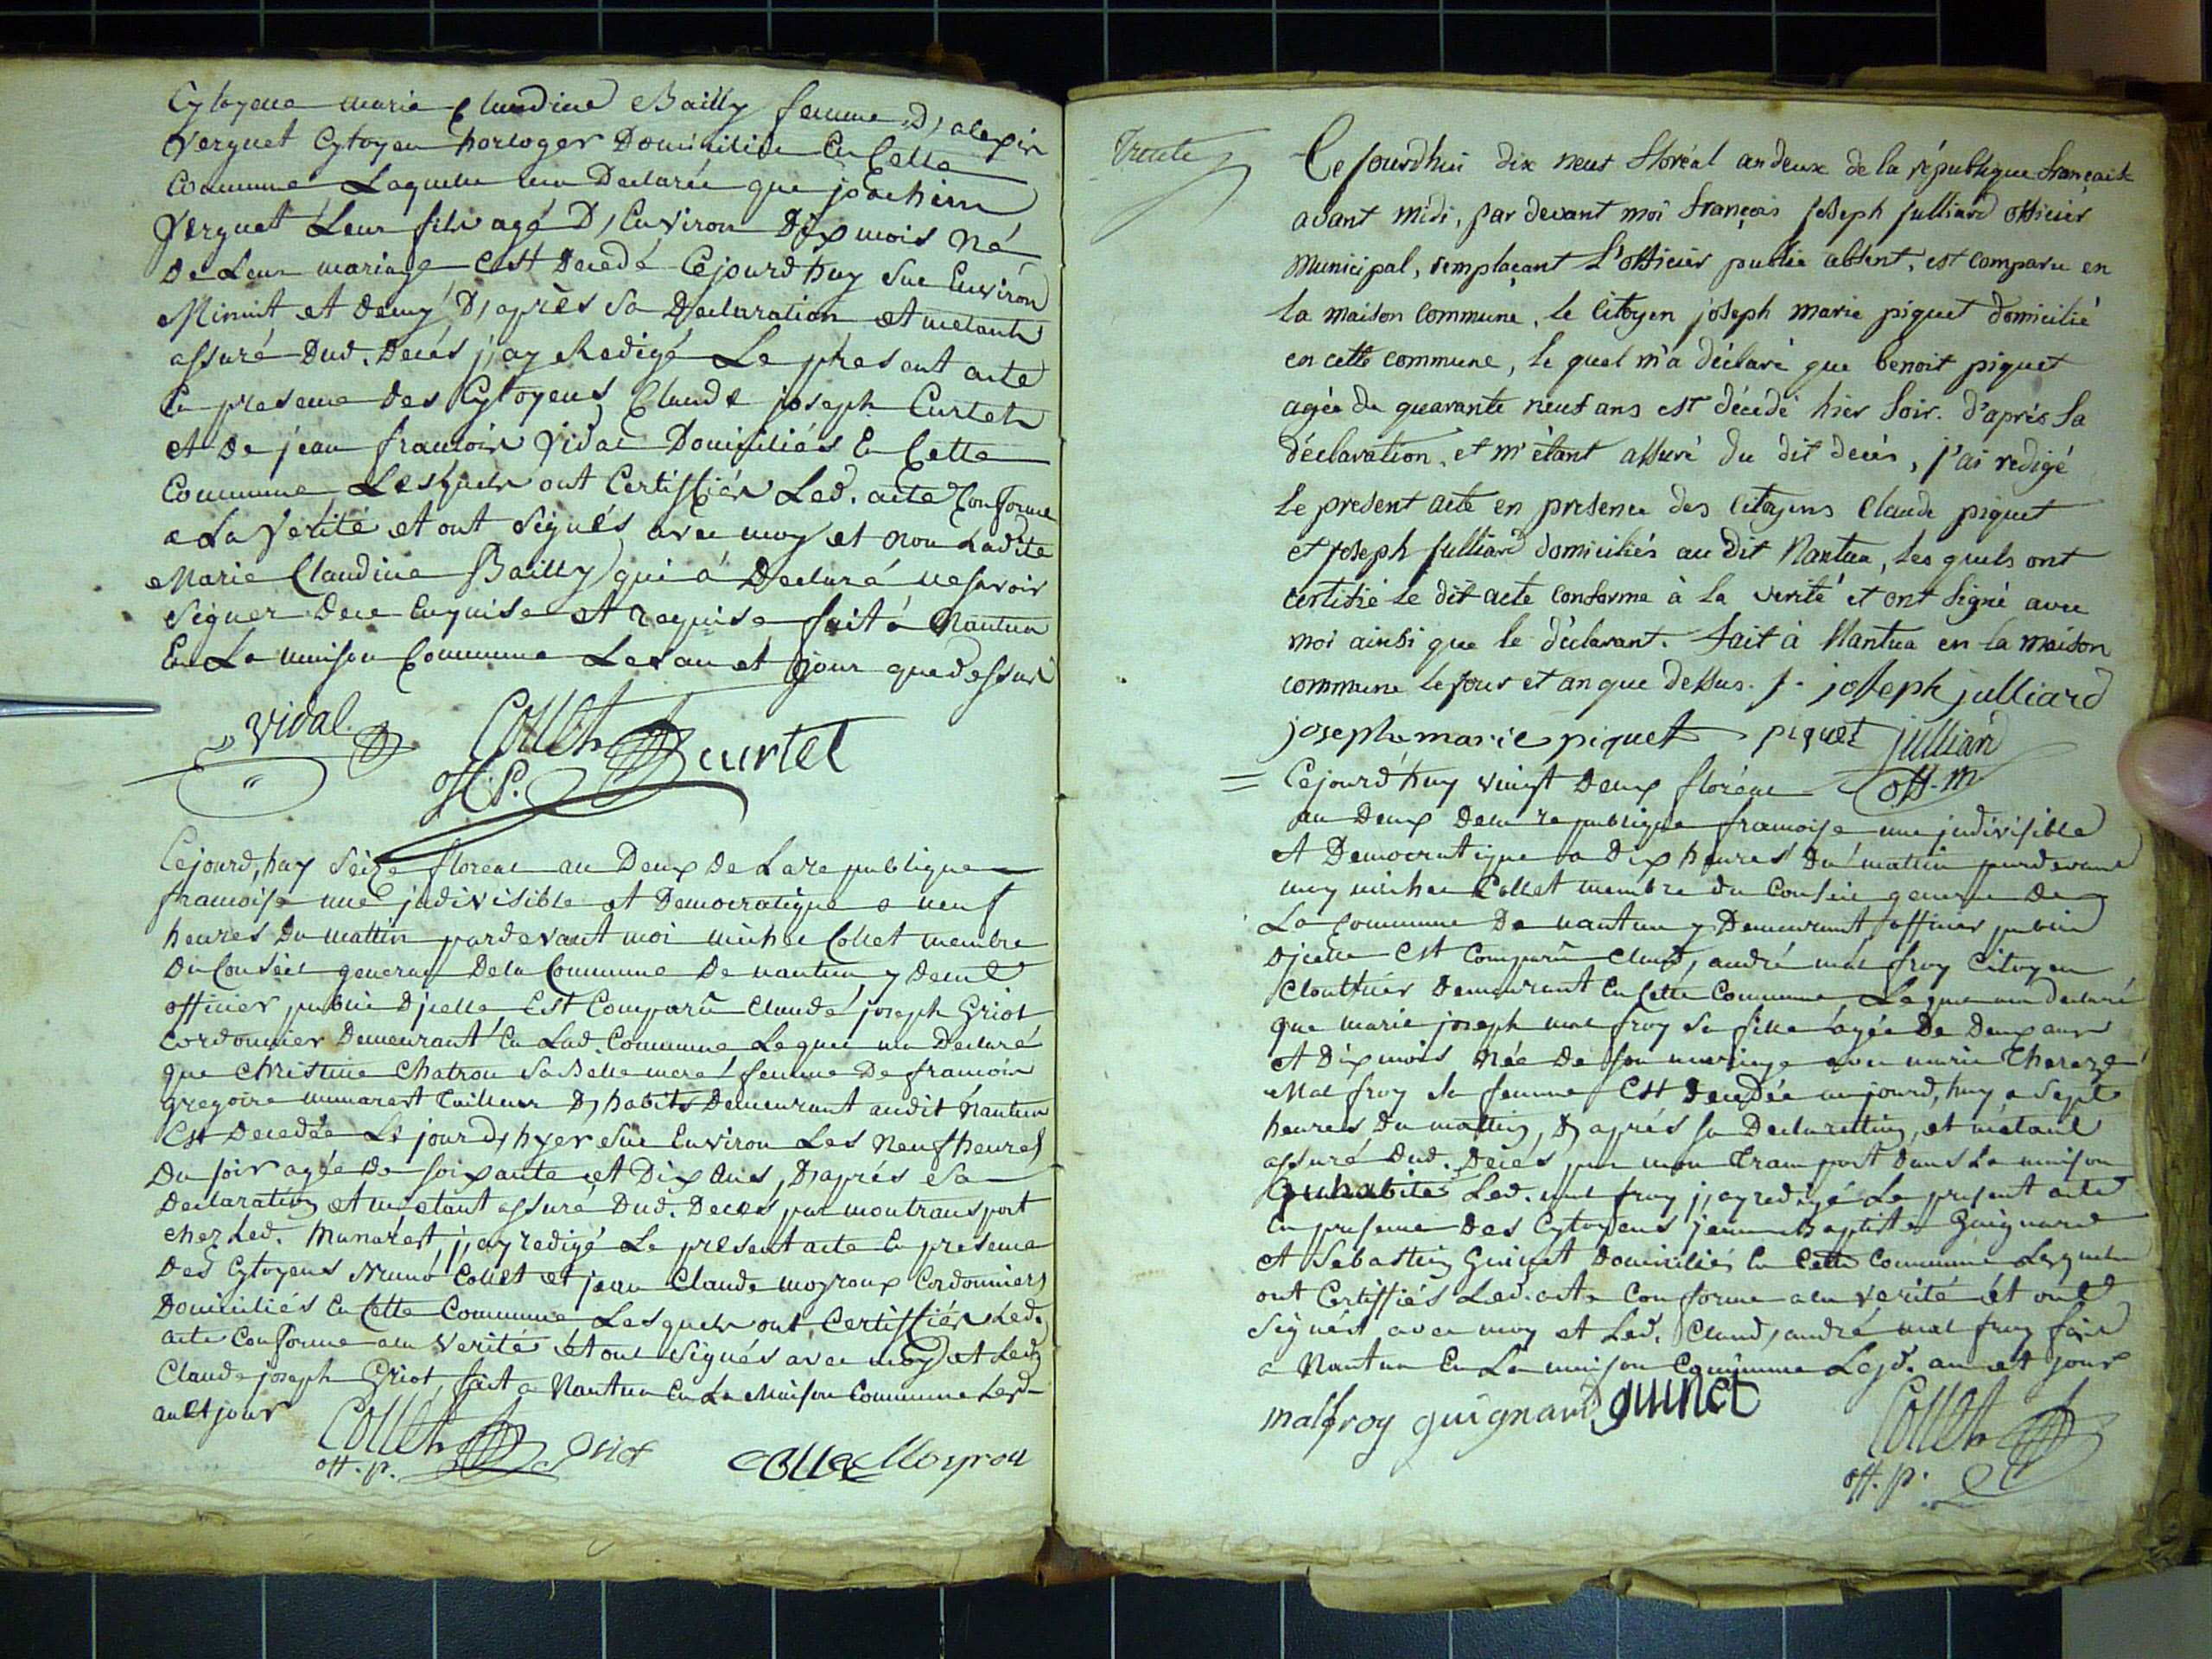 Cytoyene marie Claudine Bailly femme D, alexis
Verguet Cytoyen horloger Domicilié En Cette
Commune Laquelle ma Declarée que joachim
Verguet Leur fils agé D, Environ Dix mois Né
De Leur mariage est Decedé Cejourd huy sur Environ
Minuit et demy D, après sa Declaration et metant
assuré Dud. Decés j, ay Redigé Le present acte
En presence des Cytoyens Claude joseph Curtet
et De jean francois Vidal Domiciliés En Cette
Commune Lesquels ont Certiffiés Led. acte Conforme
a La Verité et ont signés avec moy et non Ladite
Marie Claudine Bailly qui a Declaré ne savoir
signer Dece Enquise et Requise fait a Nantua
En La maison Commune Les an et jour que dessus
Vidal Collet curtet
off. P.
Cejourd, huy seize floreal an Deux De La republique
francoise une jndivisible et Democratique a neuf
heures Du mattin pardevant moi michel Collet membre
Du Conseil general Dela Commune De nantua y Demt
officier public D'jcelle Est Comparû Claude joseph Griot
Cordonnier Demeurant En Lad. Commune Lequel ma Declaré
que Christine Chatron sa Belle mere femme De francois
gregoire munarest Tailleur D, habits Demeurant audit Nantua
Est Decedée Le jour d, hyer sur Environ Les Neuf heures
Du soir agée De soixante et Dix ans, D, aprés sa
Declaration et m'etant assuré Dud. Deces par mon transport
chez Led. Munarest j, ay redigé Le present acte En presence
Des Cytoyens Collet et jean Claude moyroux Cordonniers
Domiciliés En Cette Commune Lesquels ont Certiffiés Led.
acte Conforme a la Verité et ont signés avec moy et Led.
Claude joseph Griot fait a Nantua En La Maison Commune Lesd.
an Et jour
Collet Griot Collet Moyrou
off. p.
Trente
Cejourdhui dix neuf floréal an deux de la république française
avant midi, par devant moi françois joseph julliard officier
municipal, remplaçant L'officier public absent, est comparu en
la maison commune, le citoyen joseph marie piquet domicilié
en cette commune, le quel m'a déclaré que benoit piquet
agée de quarante neuf ans est décédé hier soir. d'après sa
déclaration, et m'étant assuré du dit décès, j'ai redigé
le present acte en presence des citoyens Claude piquet
et joseph julliard domiciliés au dit Nantua, les quels ont
certifié le dit acte conforme à la verité et ont signé avec
moi ainsi que le déclarant. fait à Nantua en la maison
commune les jour et an que dessus. joseph julliard
joseph marie piquet piquet julliard
off. m
Cejourd'huy vingt Deux floréal
an Deux Dela republique francoise une jndivisible
et Democratique a Dix heures Du mattin pardevant
moy michel Collet membre du Conseil general De
La Commune De nantua y Demeurant officier public
D'jcelle Est Comparû Claud, andré mal froy Citoyen
Clouttier Demeurant En Cette Commune Lequel ma declaré
que marie joseph mal froy sa fille agée De Deux ans
et Dix mois Née De son mariage avec marie Thereze
Mal froy sa femme Est Decedée aujourd, huy a Sept
heures Du mattin, D, aprés sa Declaration, et m'etant
assuré Dud. Decés par mon Transport dans La maison
qu'habite Led. mal froy j, ay redigé Le present acte
En presence des Cytoyens jean Baptiste Guignard
et Sebastien Guinet Domiciliés En Cette Commune Lesquels
ont Certiffiés Led. acte Conforme a la verité et ont
signés avec moy et Led. Claud, andré mal froy fait
a Nantua En La maison Commune Lesd. an et jour
malfroy guignard guinet Collet
off. p.